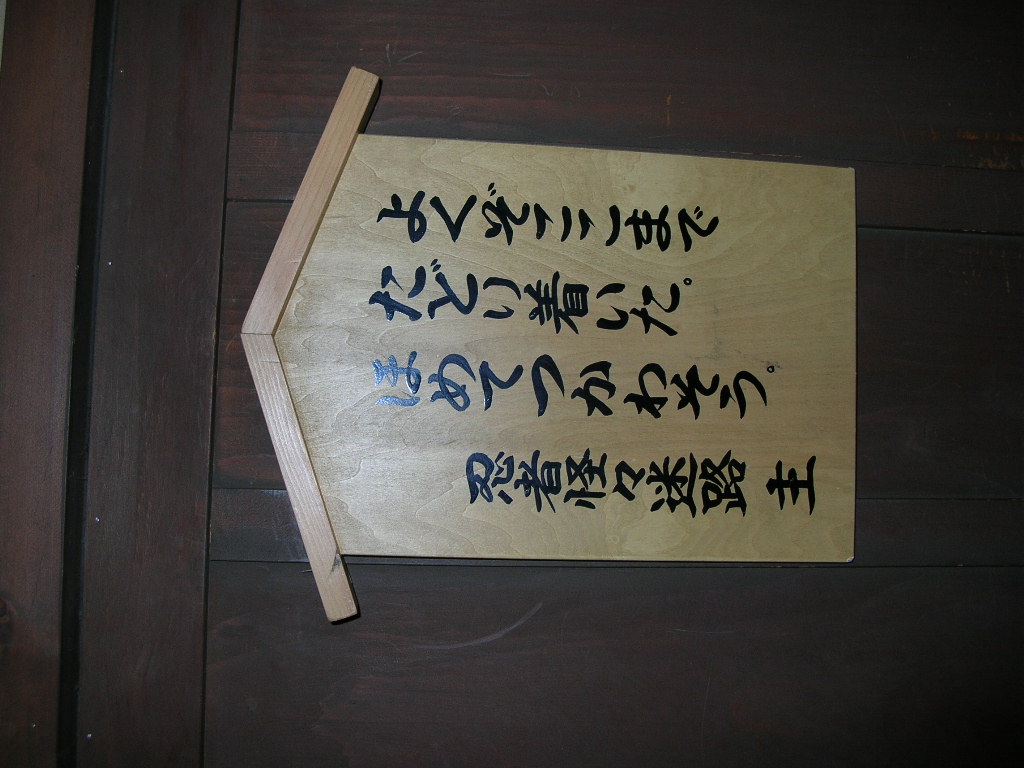 よくぞここまで
たどり着いた。
ほめてつかわそう。
忍者怪々迷路 主